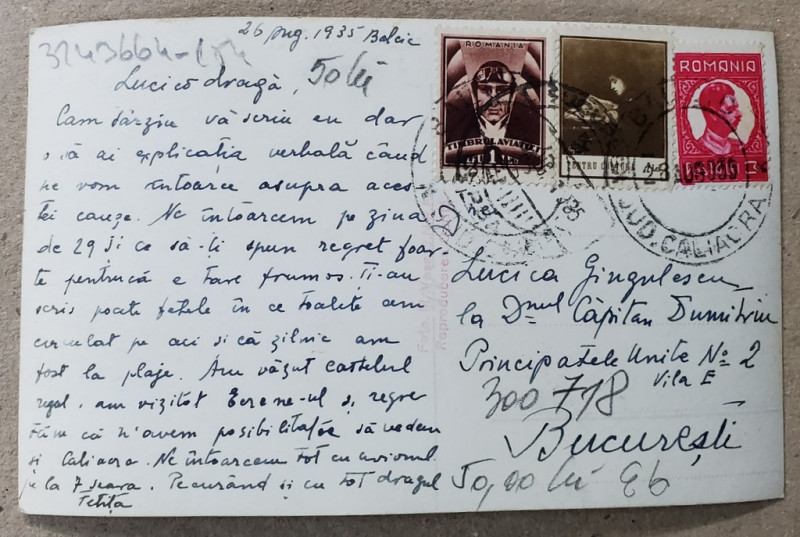 26 Aug. 1935 Balcic
Lucico dragă,
50 lei
Cam târziu vă scriu eu dar
o să ai explicația verbală când
ne vom întoarce asupra aces
tei cauze. Ne întoarcem pe ziua
de 29 și ce să-ți spun regret foar
te pentrucă e tare frumos. Ți-au
scris poate fetele în ce toalete am
circulat pe aci și că zilnic am
fost la plaje. Am văzut castelul
regal, am vizitat Ecrene-ul și regre
tăm că n'avem posibilitatea să vedem
și Caliacra. Ne întoarcem tot cu avionul
pe la 7 seara. Pe curând și cu tot dragul
Tetița
ROMANIA
TIMBRUL AVIAȚIEI
1
PENTRU
ROMANIA
JUD. CALIACRA
Foto
Reproducerea
Lucica Gingulescu
la Dnul Căpitan Dumitriu
Principatele Unite No 2
Vila E
300718
București
50,00 lei